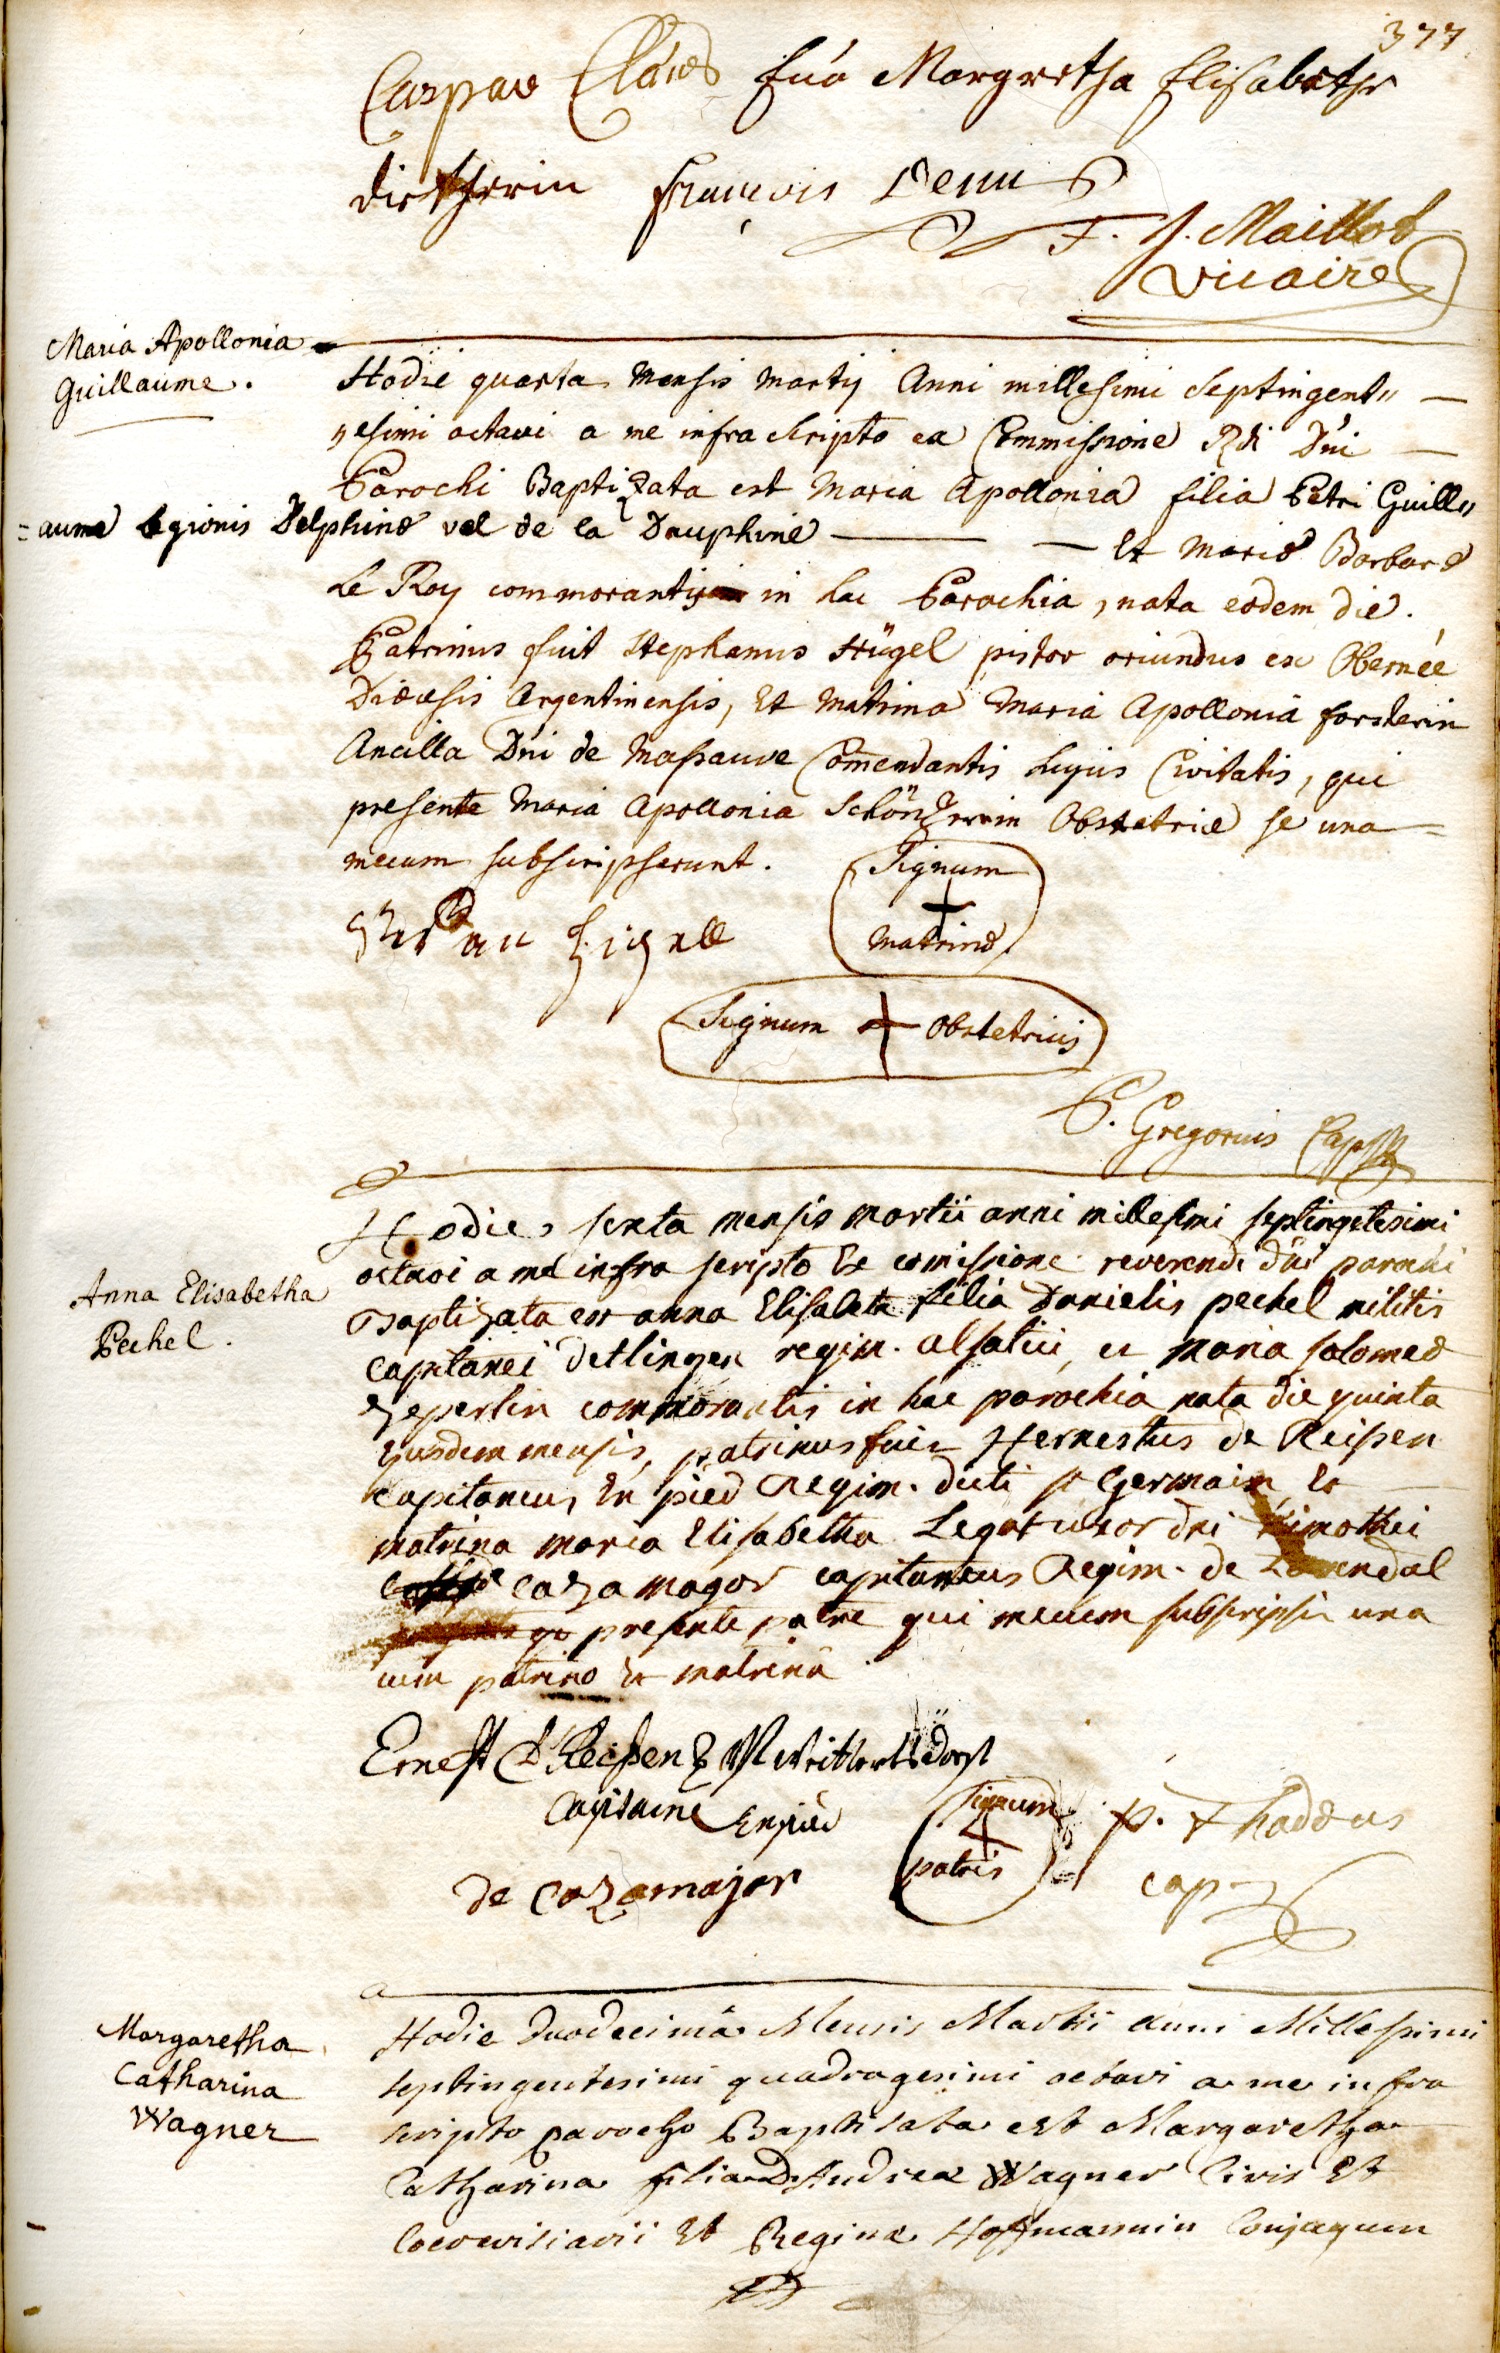 377
Caspar Claus Eúa Margretha Elisabetha
dietherin François Denu
F. J. Maillot
vicaire
Maria Apollonia
Guillaume.
Hodie quarta mensis martij Anni millesimi septingent„
„esimi octavi a me infra scripto ex Commissione Rdi Dni
Parochi Baptizata est Maria Apollonia filia Petri Guill„
=aume legionis Delphinæ vel de la Dauphiné — — Et Mariæ Barbaræ
Le Roy commorantis in hac Parochia, nata eodem die.
Patrinus fuit Stephanus Hügel pistor oriundus ex Obernée
Diœcesis Argentinensis, Et Matrina Maria Apollonia forsterin
Ancilla Dni de Massauve Comendantis hujus Civitatis, qui
presente Maria Apollonia Schönherrin Obstetrice se una
mecum subscripserunt.
Signum
+
Matrinæ
Signum + Obstetricis
P. Gregorius Capss
Anna Elisabetha
Pechel.
Hodie sexta mensis martii anni millesimi septingetesimi
octavi a me infra scripto Ex comissione reverendi dni parochi
Baptizata est anna Elisabeta filia Danielis pechel militis
capitanei Detlingen regim. alsatici, et maria salomeæ
Zeperlin commorantis in hac parochia nata die quinta
ejusdem mensis, patrinus fuit Hernestus de Reissen
capitaneus En pied Regim. dicti st Germain Et
matrina maria Elisabetha Legat uxor dni Timothei
cazamagor capitaneus Regim. de Lavendal
presente patre qui mecum subscripsit una
cum patrino Et matrina
Ernest d'Reissen
Capitaine Enpied
Signum
+
patris
p. Thaddæus
cap
de Cazamajor
Margaretha
Catharina
Wagner
Hodie duodecima Mensis Martii anni Millesimi
septingentesimi quadragesimi octavi a me infra
scripto parocho Baptisata est Margaretha
Catharina filia D. Andreæ Wagner Civis Et
Cocerevisiarii Et Reginæ Hoffmannin Conjugum